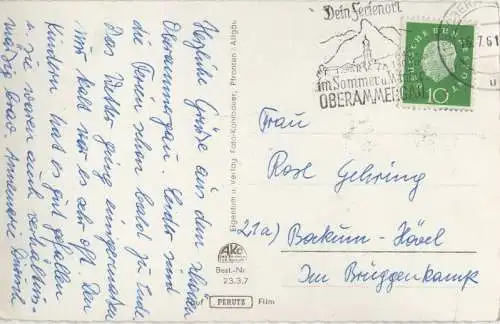 Herzliche Grüße aus dem schönen
Oberammergau. Leider sind
die Ferien schon bald zu Ende.
Das Wetter ging einigermaßen
nur kalt war es sehr oft. Den
Kindern hat es gut gefallen
u. sie waren auch verhältnis-
mäßig brav. Annemarie
Eigentum u. Verlag Foto-Kohlbauer, Pfronten/Allgäu
AKC
Best.-Nr.
23.3.7
auf PERUTZ Film
Dein Ferienort
im Sommer u. Winter
OBERAMMERGAU
7.61
DEUTSCHE BUNDESPOST
10
Frau
Rose Gehring
21a) Bockum-Hövel
Im Brüggenkamp